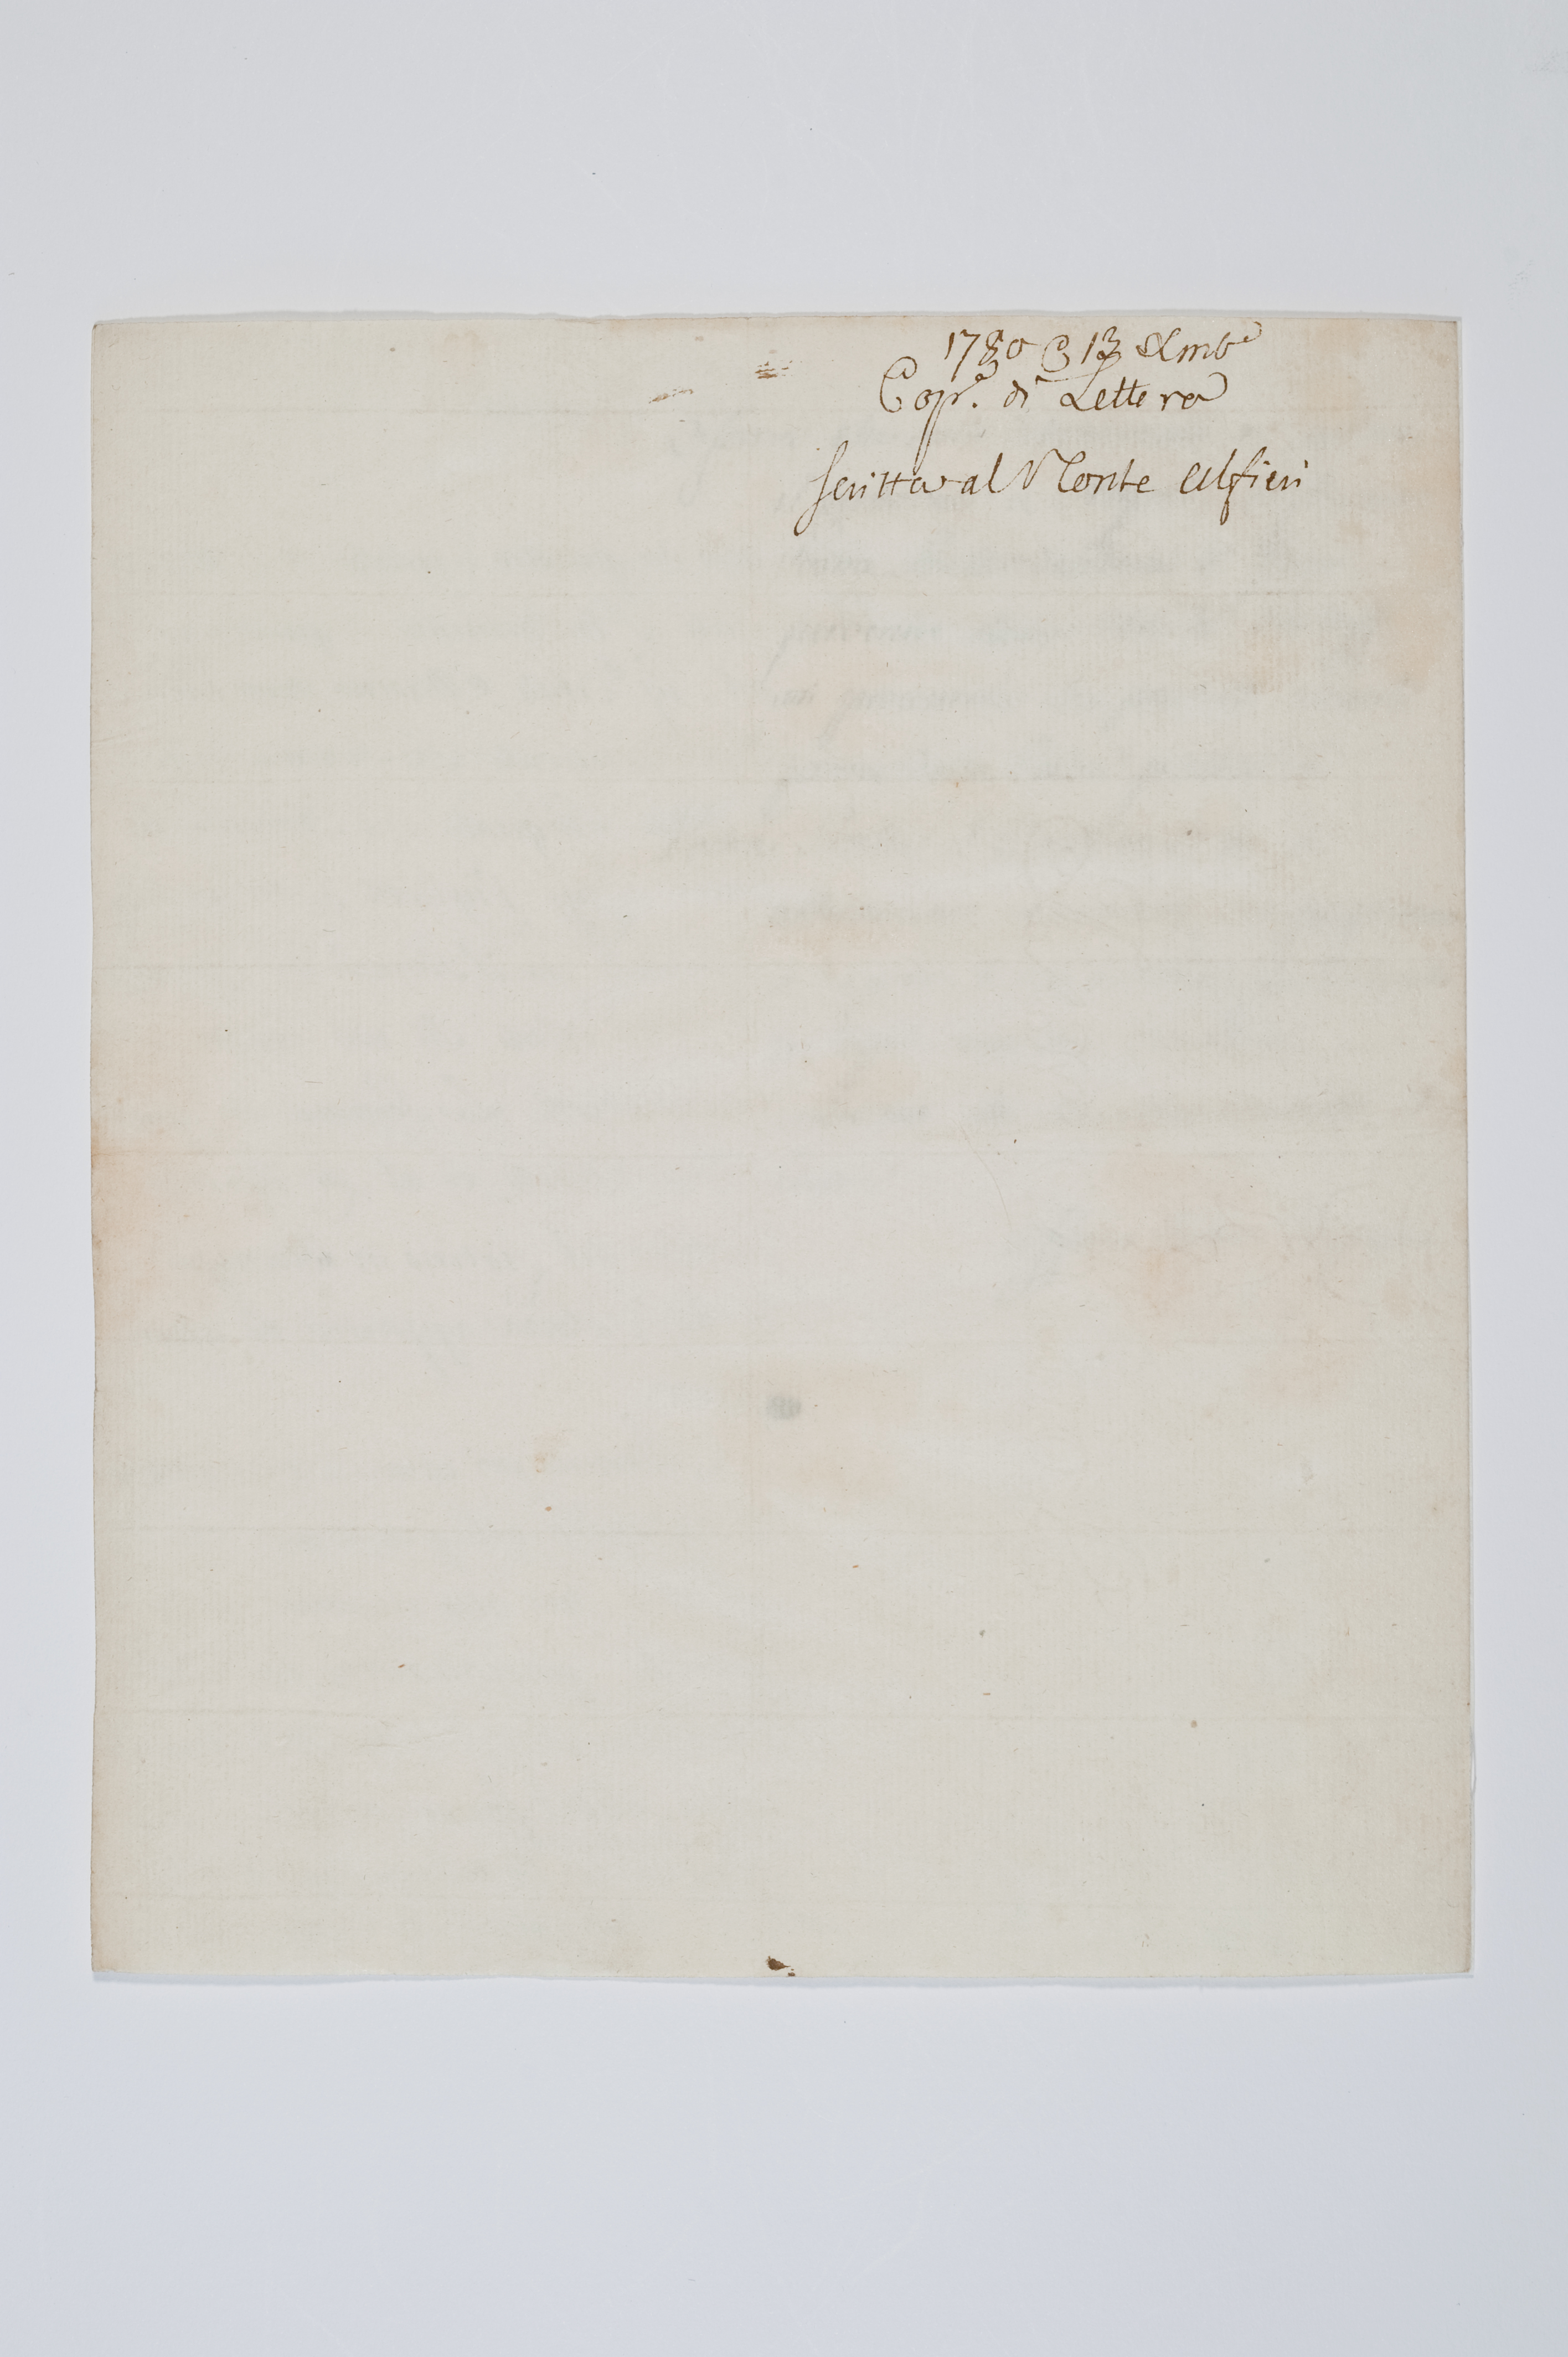 1780 13 Xmbe
Copa. di Lettera
scritta al Conte Alfieri